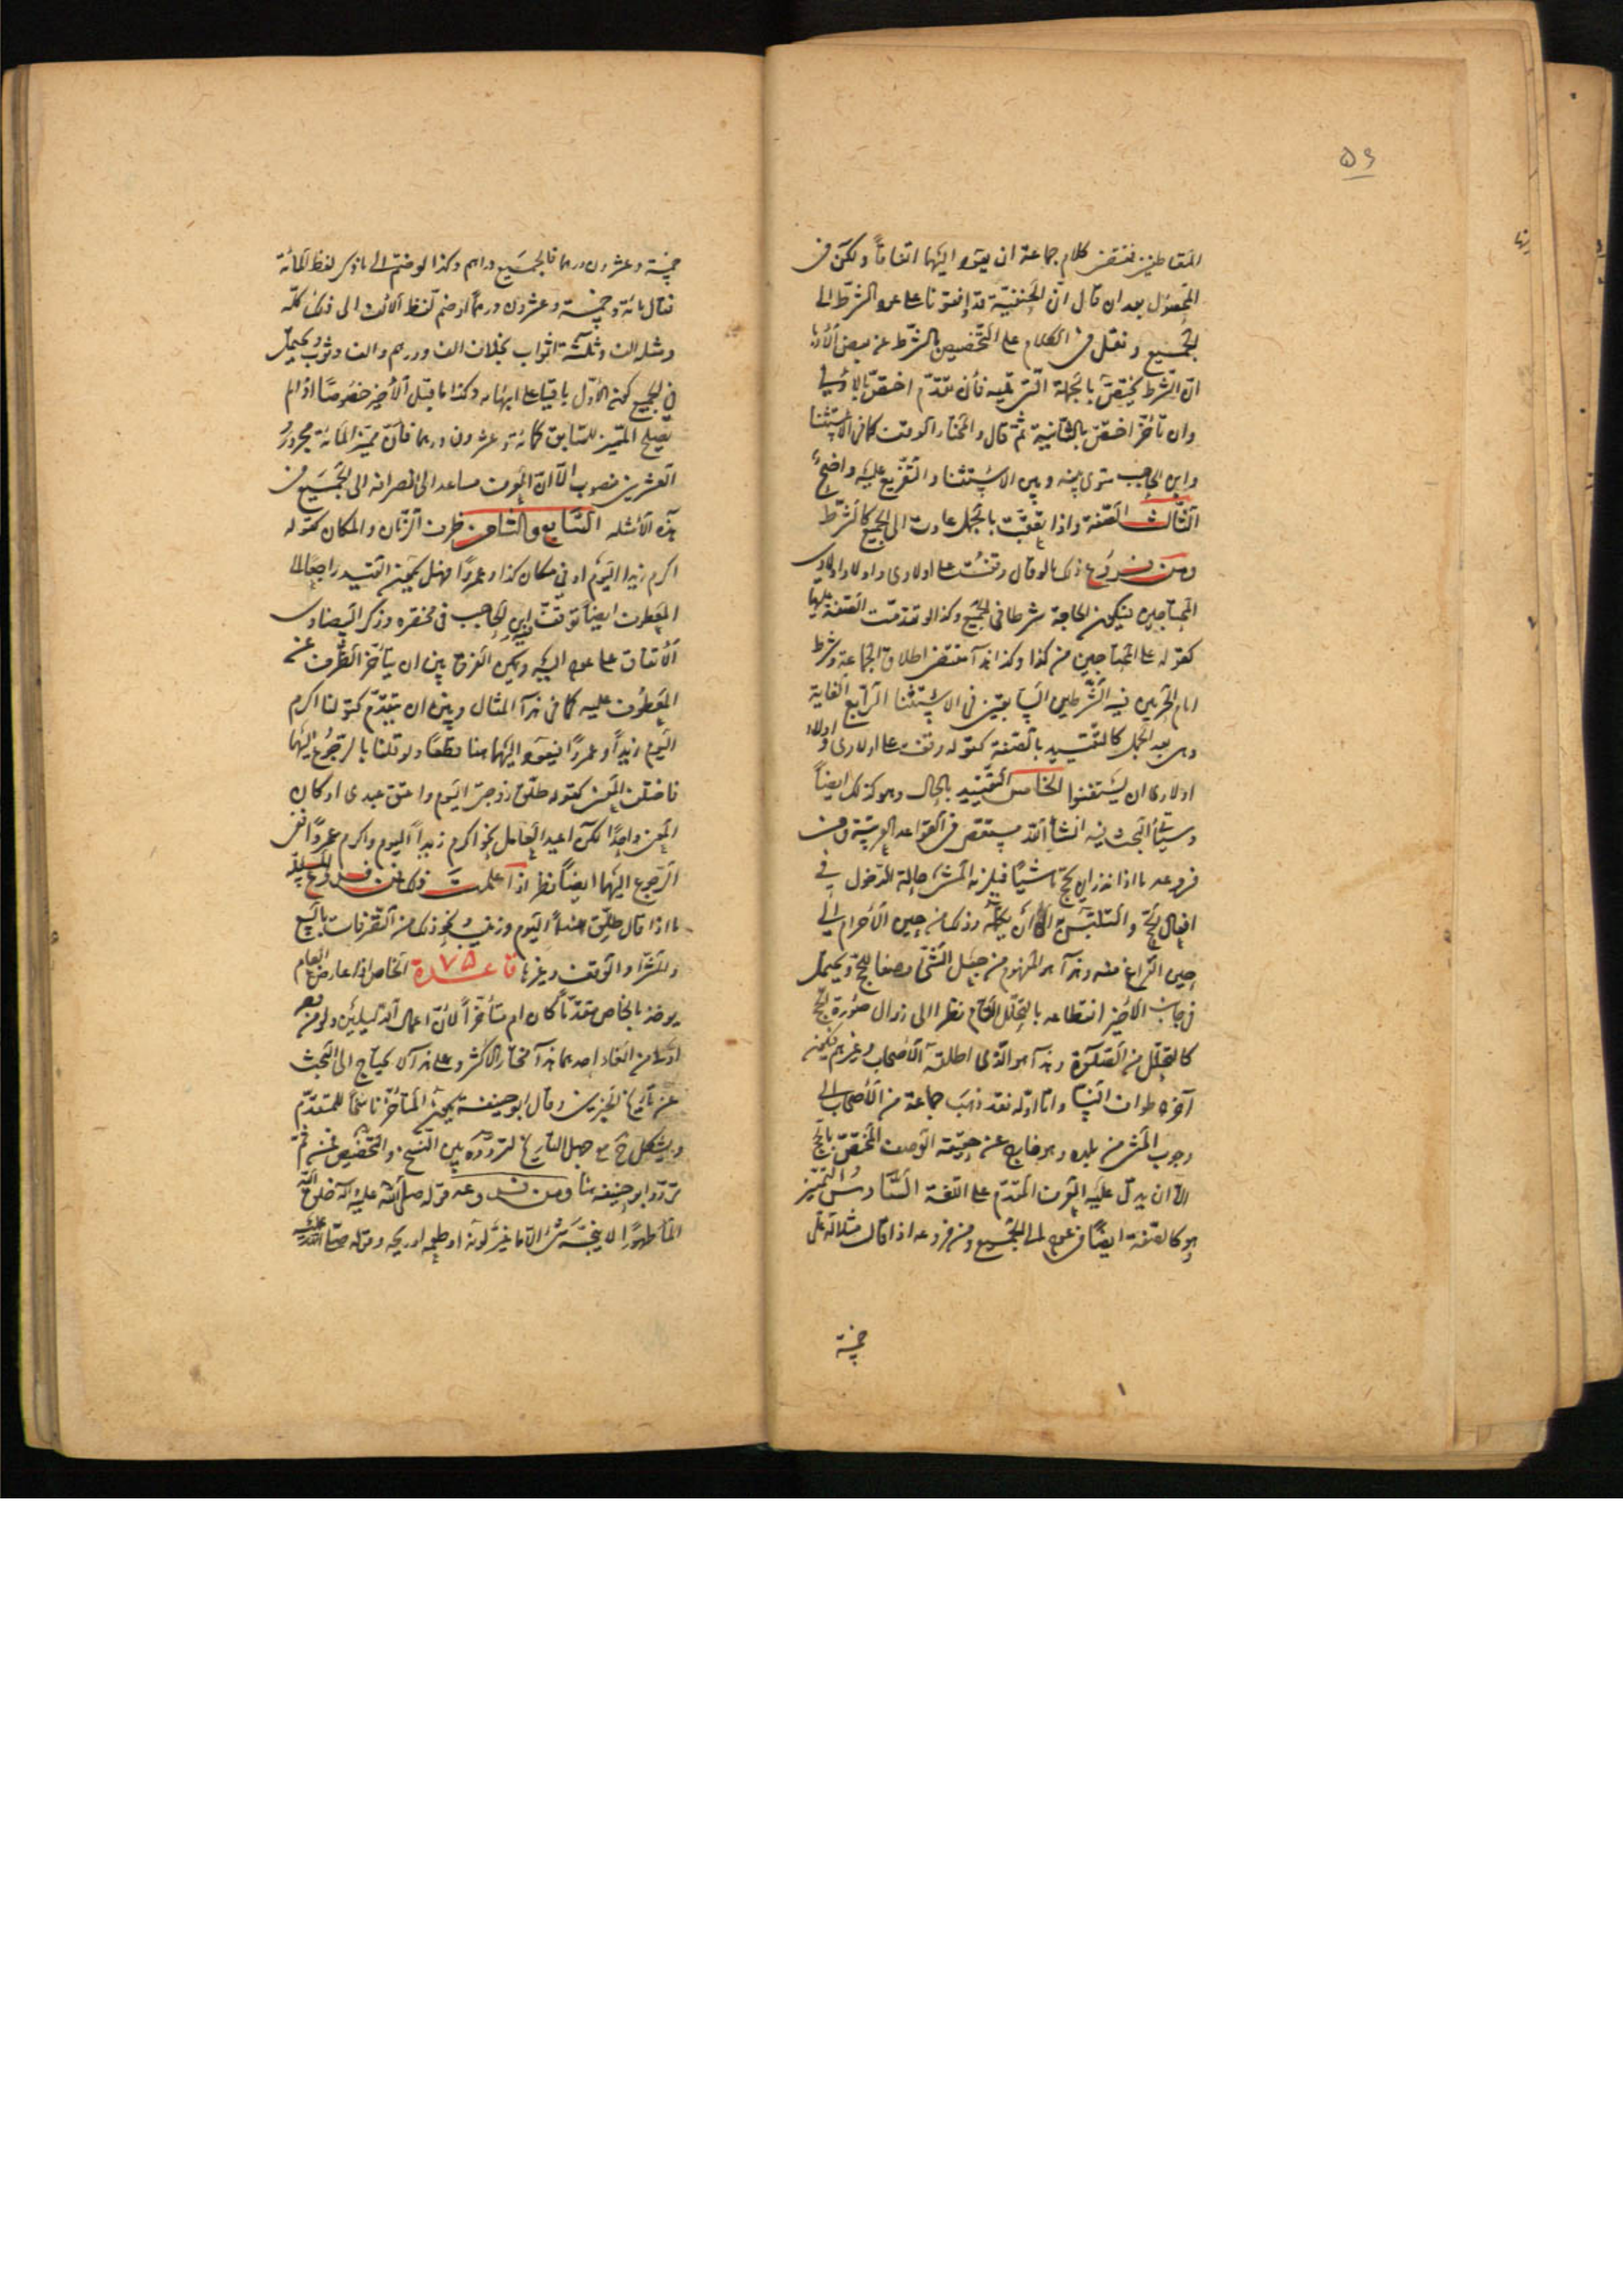 ۵۶
المتعاطفين فمقتضى كلام جماعة ان يعود اليهما اتفاقاً ولكن فى
المحصول بعد ان قال انّ الحنفيّة قد اتفقونا على عود الشرط الى
الجميع ونقل فى الكلام على التخصيص بالشرط عن بعض الأدبا
انّ الشرط يختصّ بالجملة التى تليه فان تقدّم اختصّ بالاولى
وان تأخّر اختصّ بالثانية ثمّ قال والمختار الوقف كما فى الاستثنا
وابن الحاجب سوى بينه وبين الاستثنا والتفريع عليه واضح
الثالث الصفة واذا تعقّبت بالجمل عادت الى الجميع كالشرط
ومن فروع ذلك ما لو قال وقفت على اولادى واولاد اولادى
المحتاجين فيكون الحاجة شرطا فى الجميع وكذا لو تقدمت الصفة عليها
كقوله على المحتاجين من كذا وكذا هذا مقتضى اطلاق الجماعة وشرط
امام الحرمين فيه الشرطين السابقين فى الاستثنا الرابع الغاية
وهى بعد الجمل كالتقييد بالصفة كقوله وقفت على اولادى واولاد
اولادى ان يستغنوا الخامس التقييد بالحال وهو كذلك ايضاً
وسيأتى البحث فيه انشأ الله مستقصى فى القواعد العربيّة ومن
فروعه ما اذا نذر ان يحجّ ماشياً فيلزمه المشى حالة الدخول فى
افعال الحجّ والتلبّس الى ان يكمله وذلك من حين الاحرام الى
حين الفراغ منه وهذا هو المفهوم من جعل المشى وصفا للحجّ ويحتمل
فى جانب الاخير انقطاعه بالتحلّل التام نظرا الى زوال صورة الحج
كالتحلّل من الصلوة وهذا هو الذى اطلقه الاصحاب وغيرهم فيكون
آخره طواف النسا وامّا اوّله فقد ذهب جماعة من الاصحاب الى
وجوب المشى من بلده وهو خارج عن حقيقة الوصف المختصّ بالحجّ
الا ان يدلّ عليه العرف المقدّم على اللغة السادس التمييز
هو كالصفة ايضا فى عوده الى الجميع ومن فروعه اذا قال مثلا له علىّ
خمسة
خمسة وعشرون درهما فالجميع دراهم وكذا لو ضمّ الى ما ذكر لفظ المائة
فقال مائة وخمسة وعشرون درهماً او ضم لفظ الالف الى ذلك كلّه
ومثله الف وثلثة اثواب بخلاف الف ودرهم والف وثوب ويحتمل
فى الجميع كون الاوّل باقيا على ابهامه وكذا ما قبل الاخير خصوصاً اذا لم
يصلح المميّز للسابق كمائة وعشرون درهما فانّ مميّز المائة مجرور و
العشرين منصوب الا انّ العرف مساعد الى انصرافه الى الجميع من
هذه الامثله السابع والثامن ظرف الزمان والمكان كقوله
اكرم زيدا اليوم او فى مكان كذا وعمروا فهل يكون القيد راجعا الى
المعطوف ايضاً توقّف ابن الحاجب فى مختصره وذكر البيضاوى
الاتفاق على عوده اليه ويمكن الفرق بين ان يتأخّر الظرف عن
المعطوف عليه كما فى هذا المثال وبين ان يتقدّم كقولنا اكرم
اليوم زيداً وعمرواً فيعود اليهما هنا قطعاً ولو قلنا بالرجوع اليهما
فاختلف المعنى كقوله طلّق زوجتى اليوم واعتق عبدى او كان
المعنى واحداً لكن اعيد العامل نحو اكرم زيداً اليوم واكرم عمرواً ففى
الرجوع اليهما ايضاً نظر اذا علمت ذلك فمن فروع المسألة
ما اذا قال طلّق هنداً اليوم وزينب ونحو ذلك من التصرفات بالبيع
والشرا والوقف وغيرها قاعـدة ۷۵ الخاص اذا عارض العام
يوخذ بالخاص متقدّماً كان ام متأخراً لانّ اعمال الدليلين ولو من وجه
اولى من الغاء احدهما هذا مختار الاكثر وعلى هذا لا يحتاج الى البحث
عن تاريخ الخبرين وقال ابو حنيفة يكون المتأخر ناسخاً للمتقدّم
ويشكل ح مع جهل التاريخ لتردده بين النسخ والتخصيص فمن ثمّ
تردّد ابو حنيفه هنا ومن فروعه قوله صلى الله عليه وآله خلق الله
الماء طهوراً لا ينجّسه شئ الّا ما غيّر لونه او طعمه او ريحه وقوله صلى الله عليه